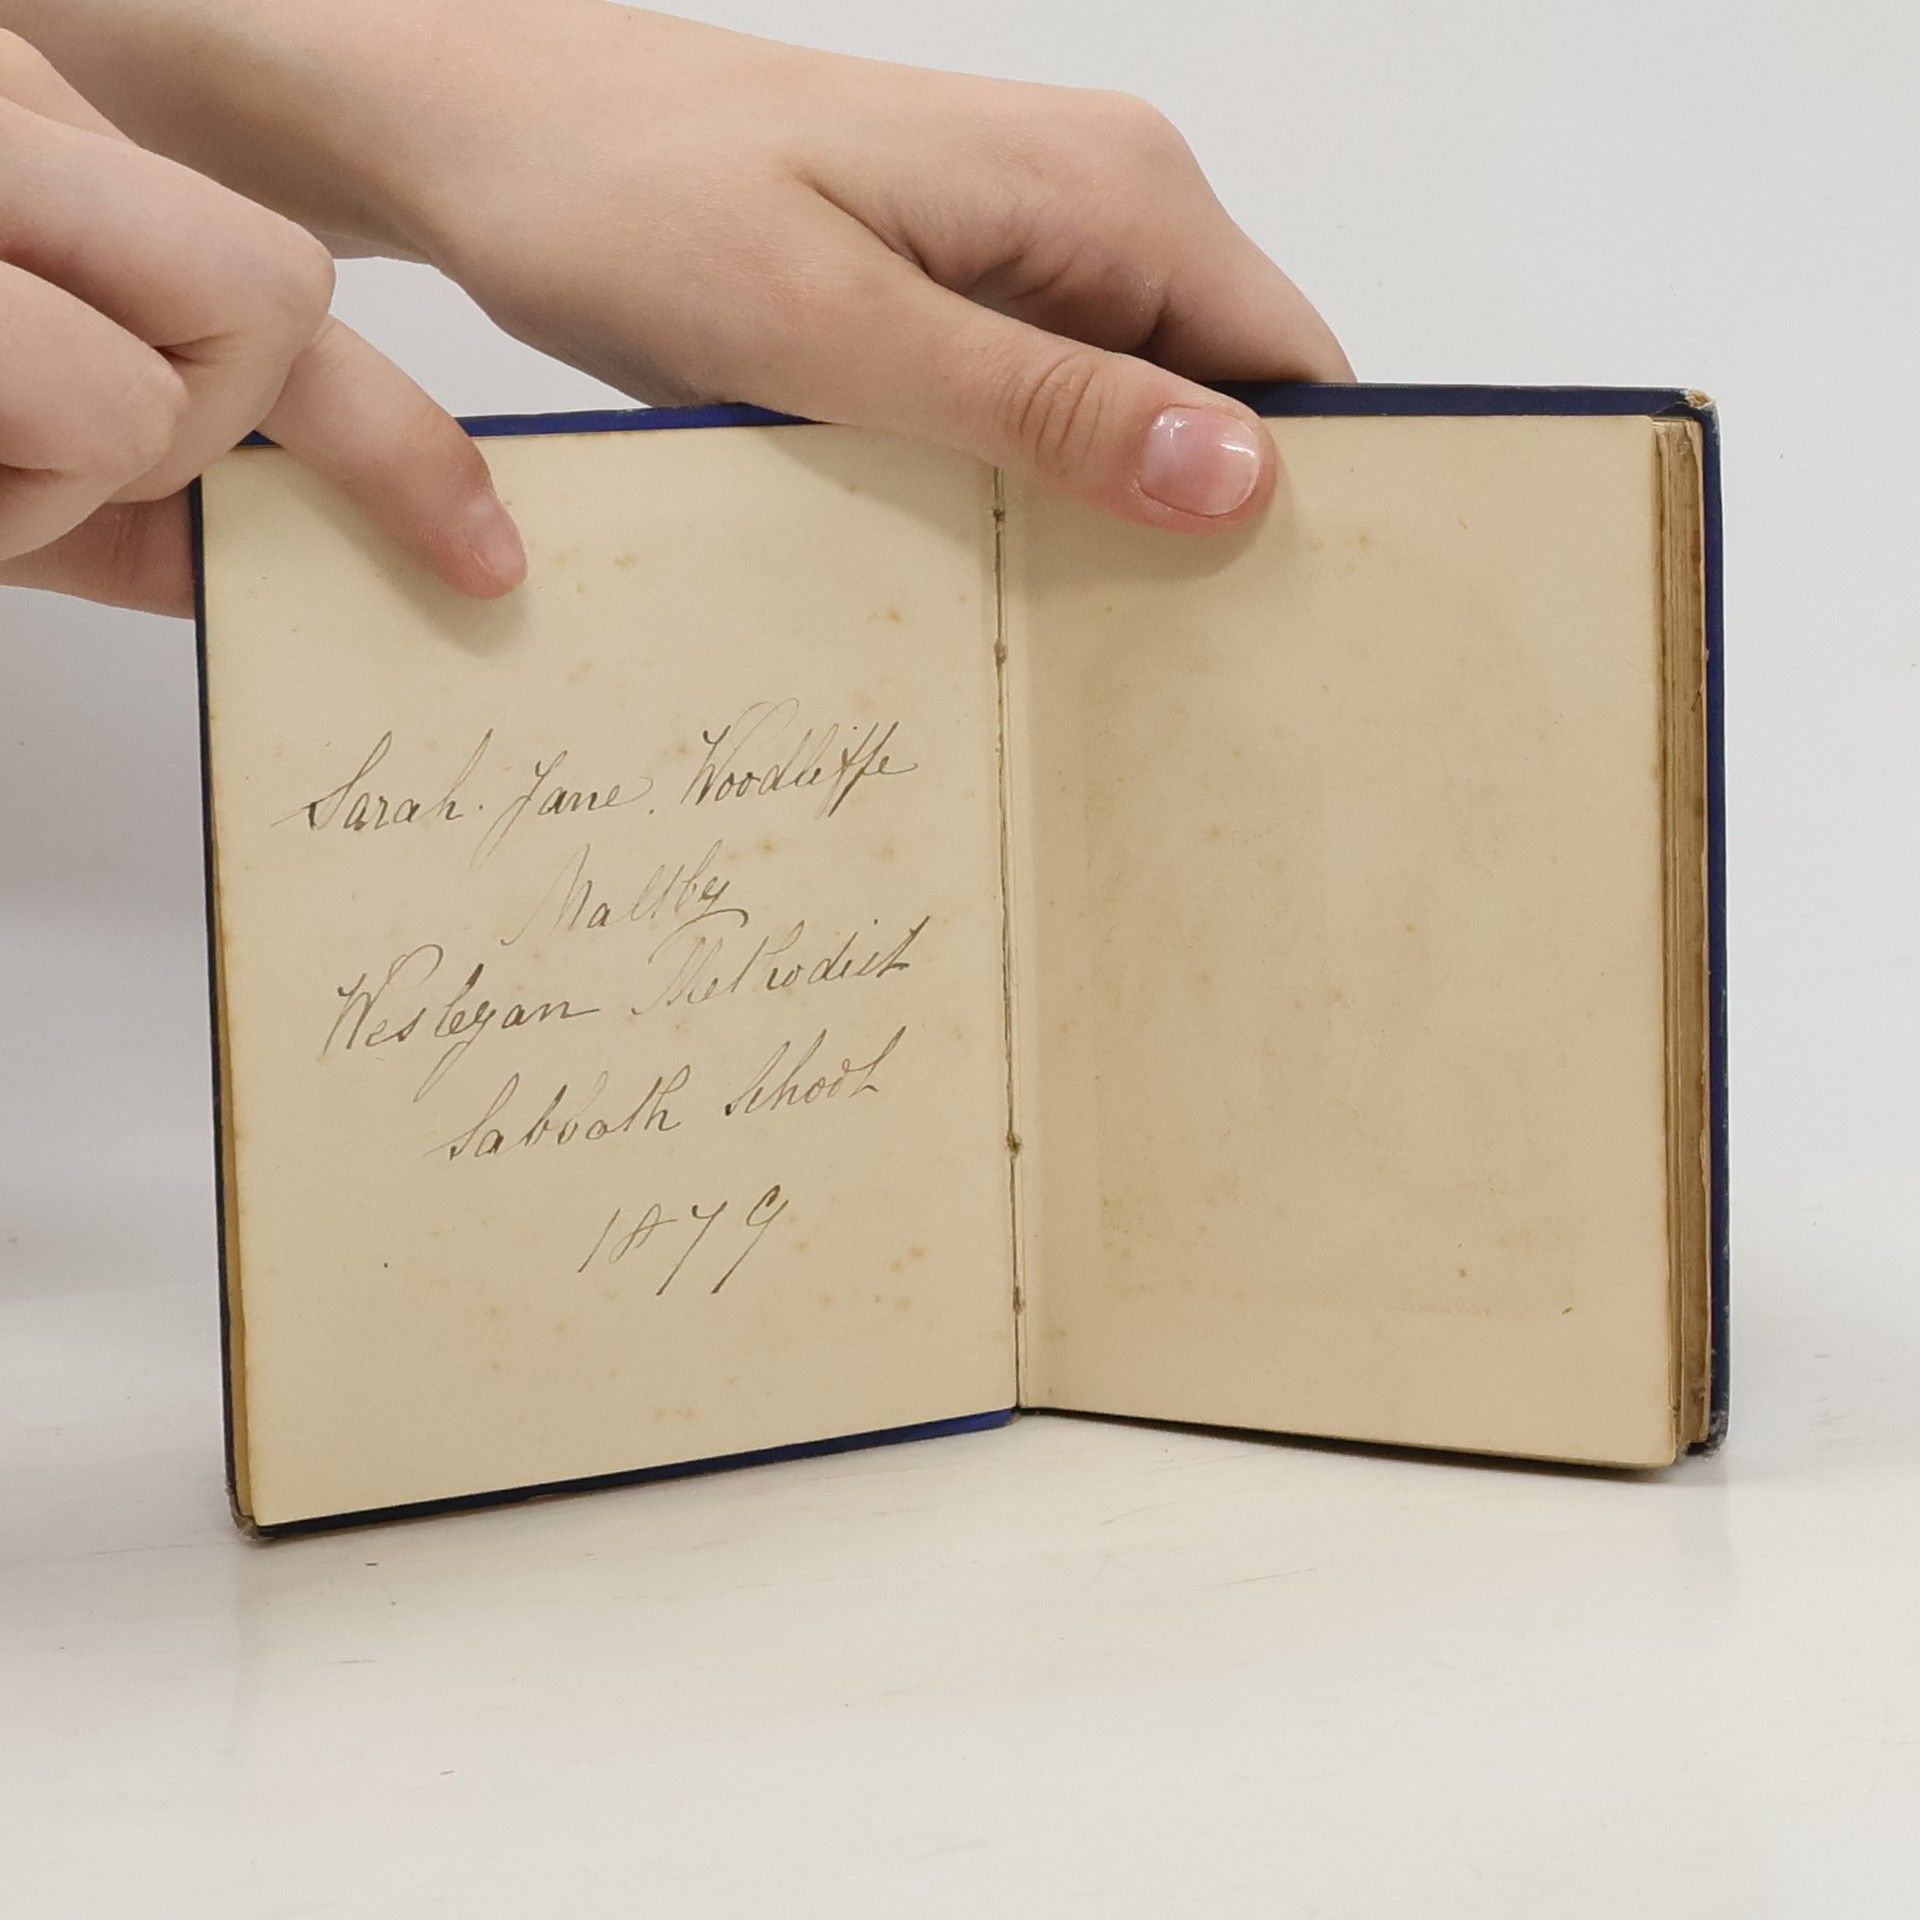 Sarah. Jane. Woodliffe
Maltby
Wesleyan Methodist
Sabbath School
1879